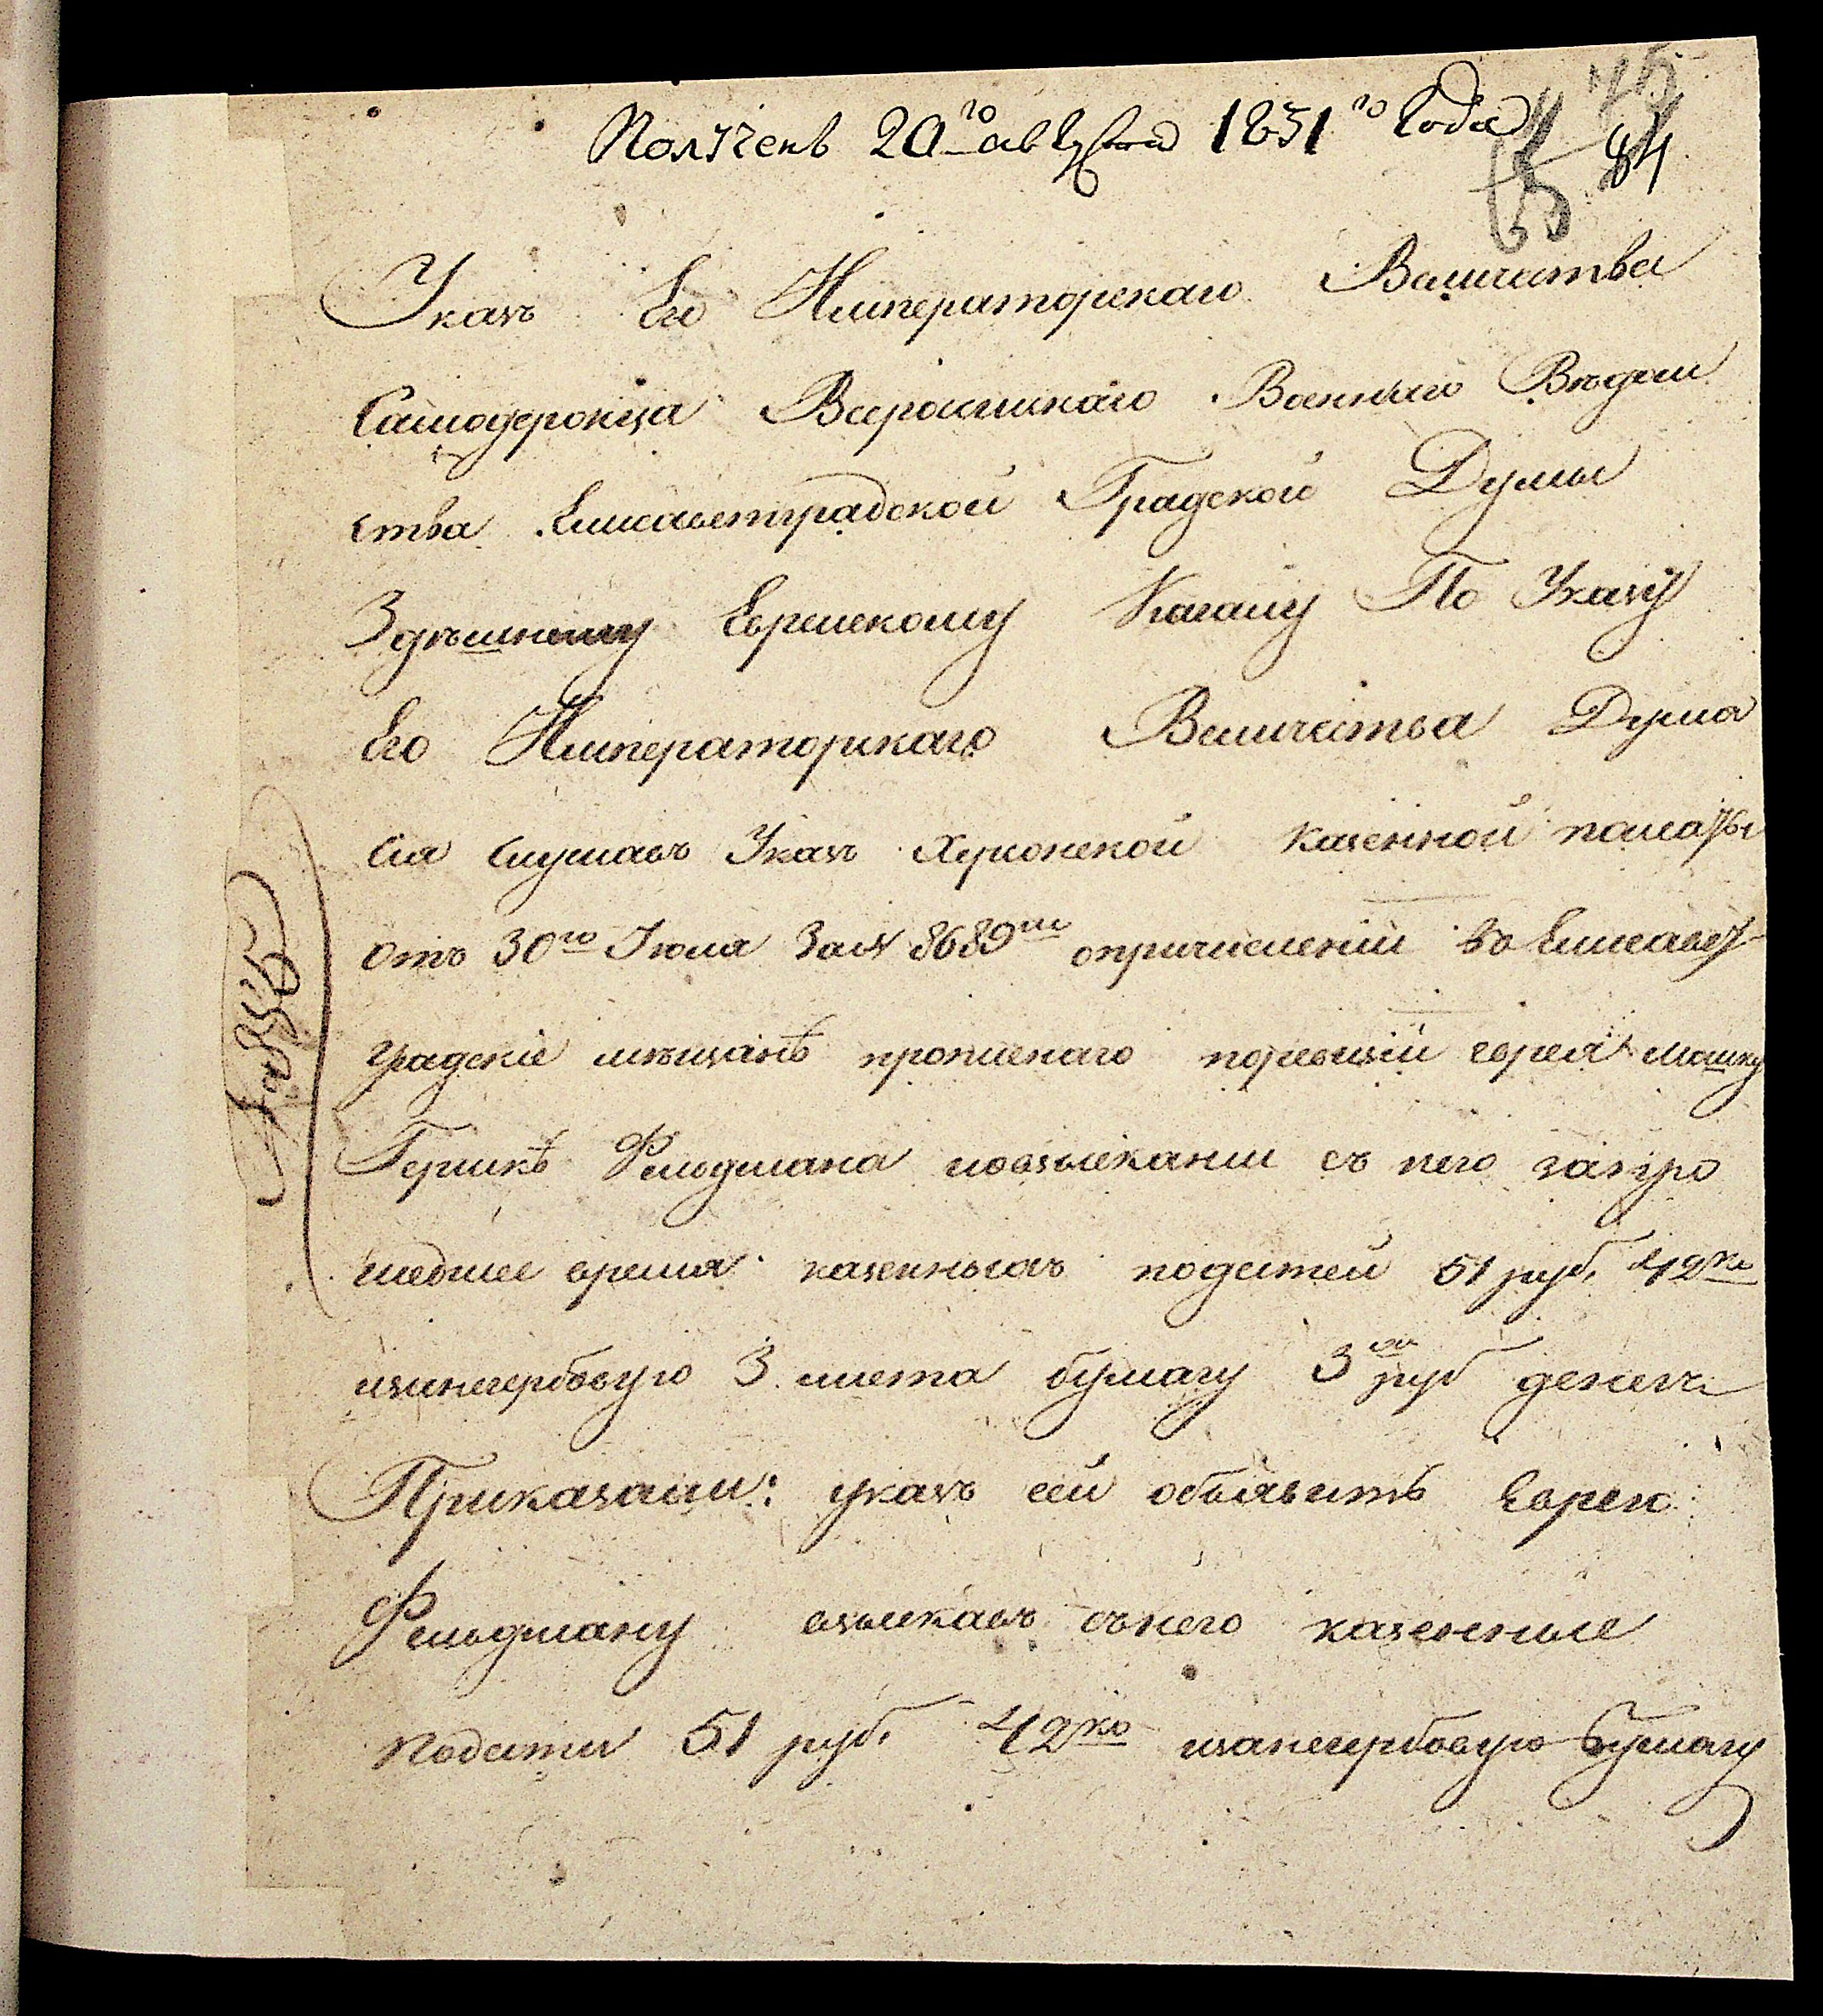 Полученъ 20го августа 1831го Года
84
Указъ Его Императорскаго Величества
Самодержца Всероссийскаго Военнаго Ведом
ства Елисаветградской Градской Думы
Здешнему Еврейскому Кагалу По Указу
Его Императорскаго Величества Дума
сия слушавъ Указъ Херсонской казенной палаты
отъ 30го Июля За № 8689мъ опричислении во Елисавет
градские мещанѣ еврея Мошку
Гершкѣ Фельдмана и овзыскании съ него запро
шедшее время казенныхъ податей 51 руб. 42 ко
изанегербовую 3 листа бумагу 3 руб денегъ
Приказали: указъ сей объявить Еврею
Фельдману взыскавъ снего казенные
подати 51 руб. 42 ко изанегербовую бумагу